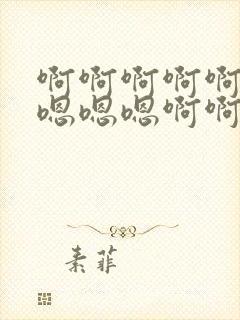 啊啊啊啊啊
嗯嗯嗯啊啊
素菲